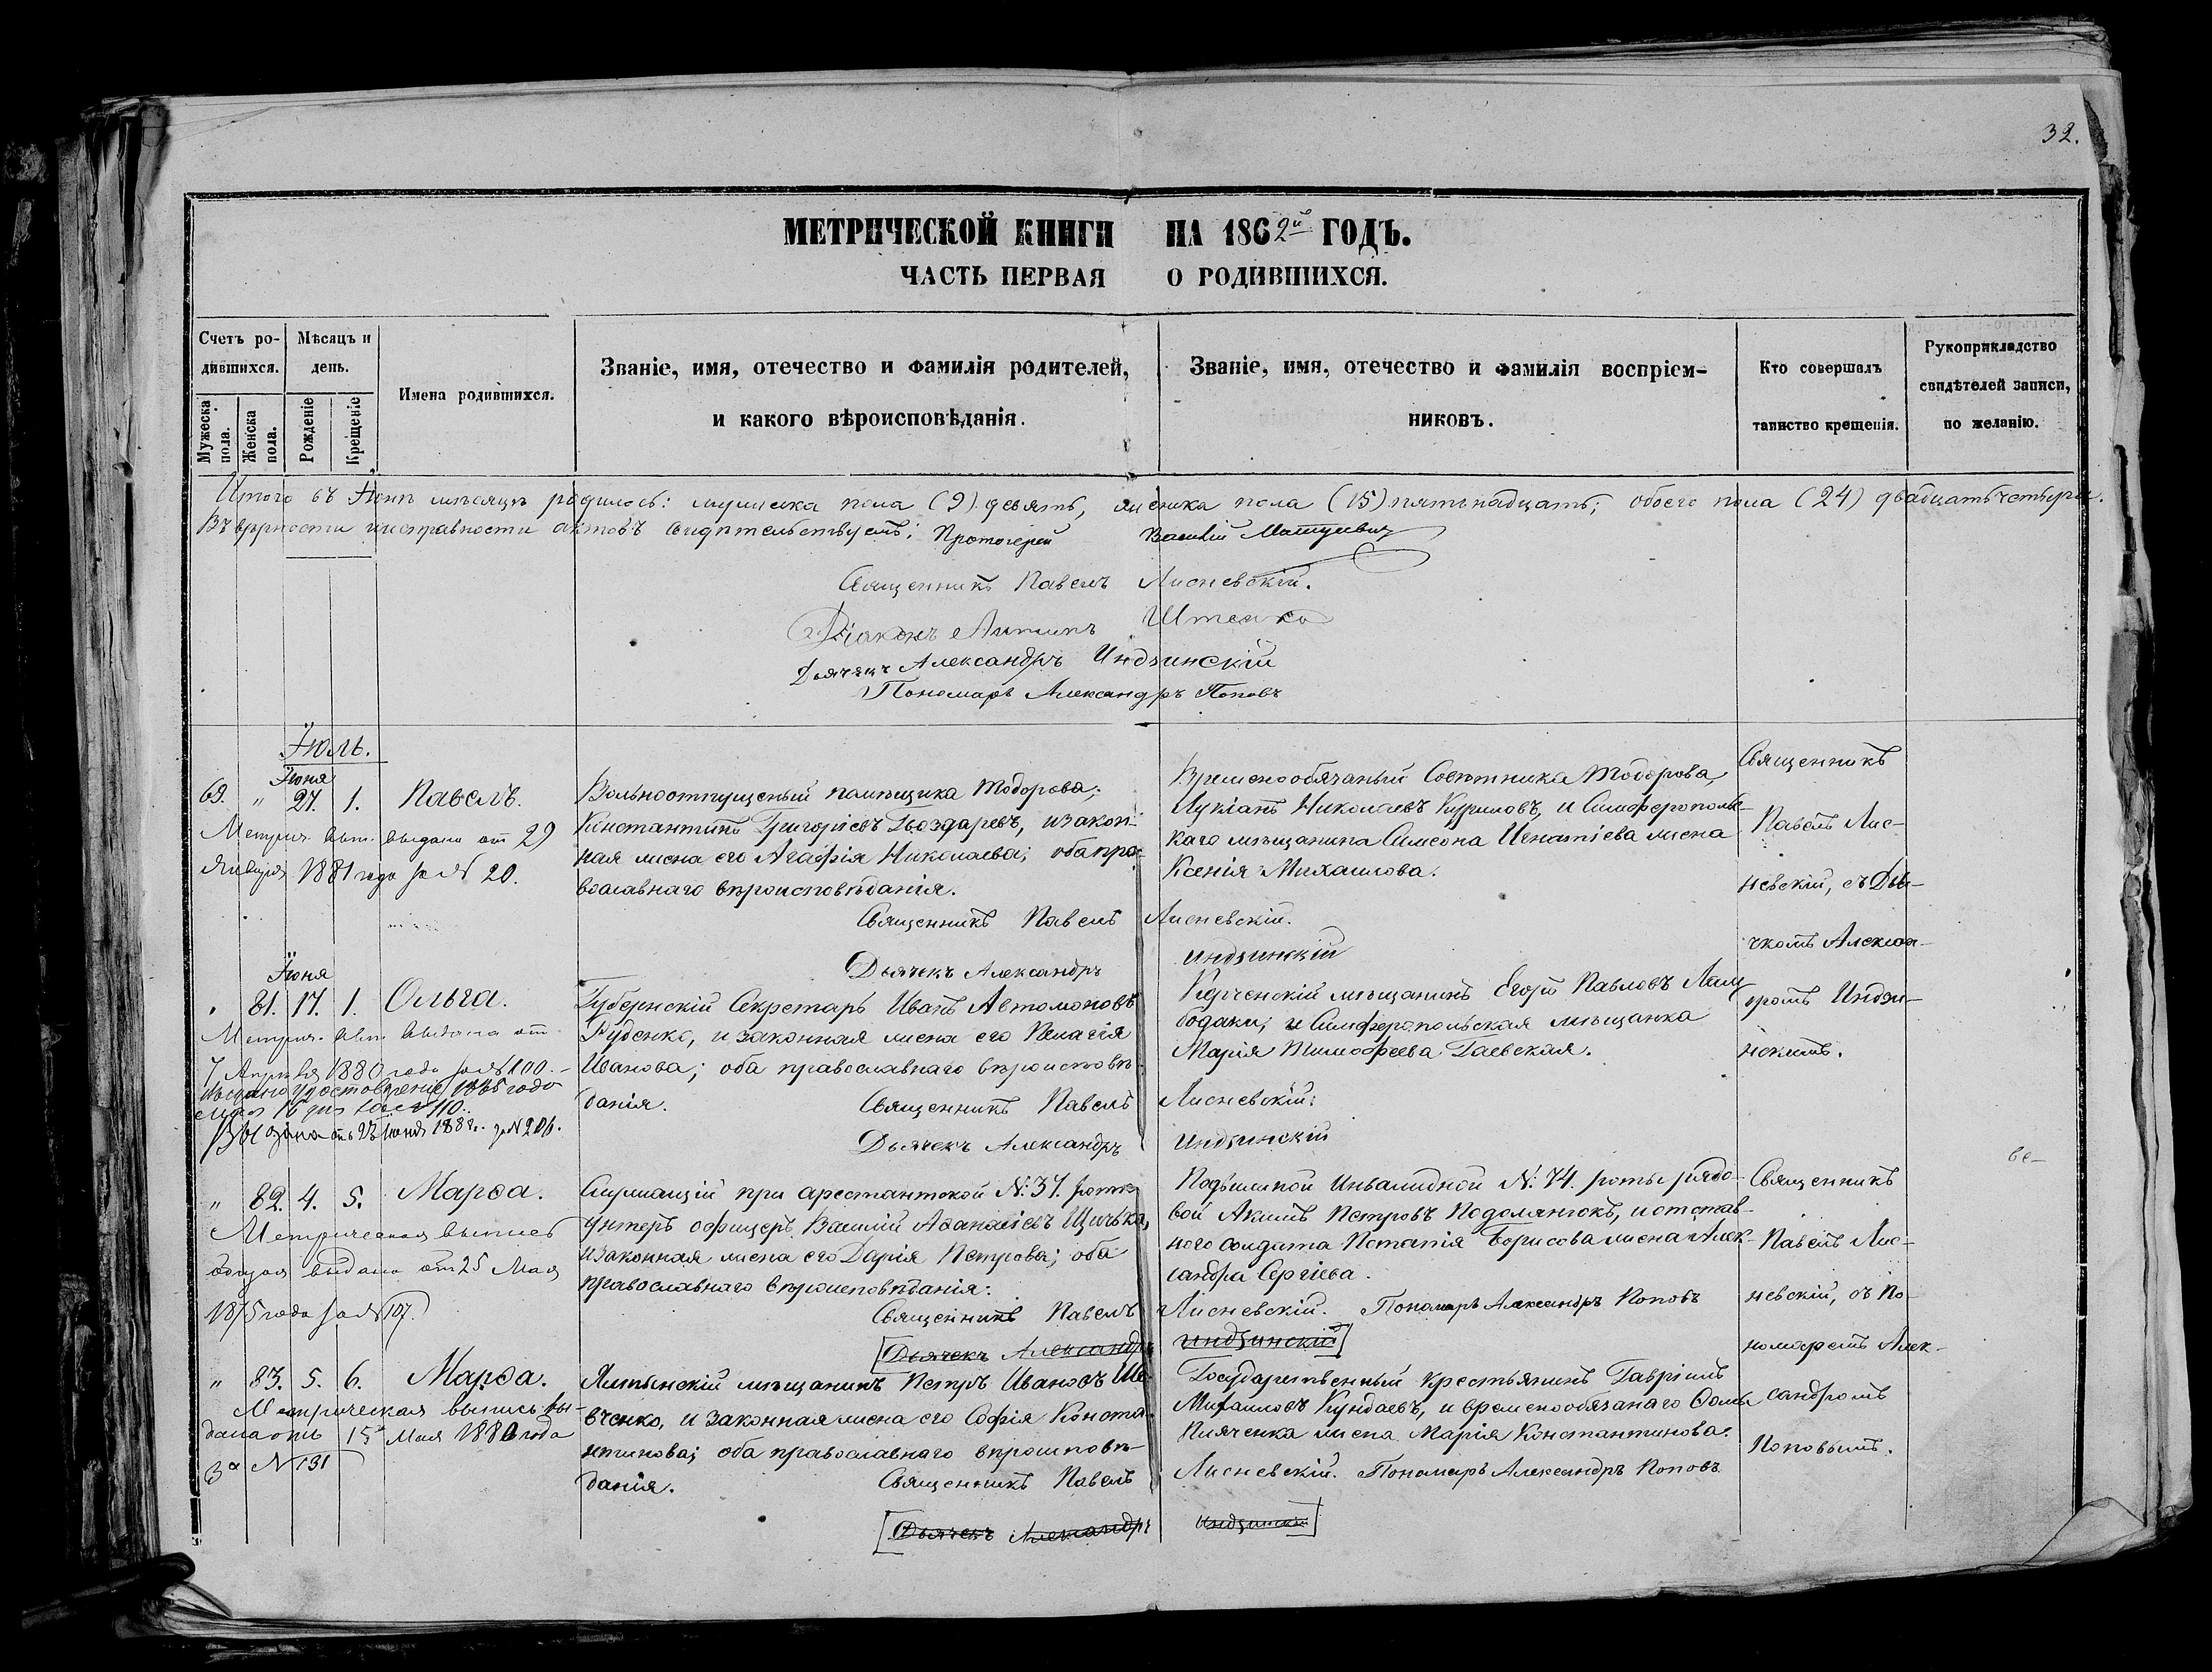 32.
МЕТРИЧЕСКОЙ КНИГИ НА 1862й ГОДЪ.
ЧАСТЬ ПЕРВАЯ О РОДИВШИХСЯ.
Счетъ родившихся.
Мужеска пола.
Женска пола.
Мѣсяцъ и день.
Рожденіе
Крещеніе
Имена родившихся.
Званіе, имя, отечество и фамилія родителей,
и какого вѣроисповѣданія.
Званіе, имя, отечество и фамилія воспріем-
никовъ.
Кто совершалъ
таинство крещенія.
Рукоприкладство
свидѣтелей записи,
по желанію.
Итого въ Іюнѣ мѣсяцѣ родилось: мужеска пола (9) девять, женска пола (15) пятьнадцать; обоего пола (24) двадцать четыре.
Въ вѣрности и исправности актовъ свидѣтельствуемъ: Протоіерей Василій
Священникъ Павелъ Лисневскій.
Діаконъ Антипъ Штенко
Дьячекъ Александръ Индзинскій
Пономарь Александръ Поповъ
Іюль.
Іюня
69. " 27. 1. Павелъ.
Метрич. вып. выдана от 29
Января 1881 года за № 20.
Вольноотпущеный помѣщика Тодорова;
Константинъ Григоріевъ Гвоздаревъ, и закон-
ная жена его Агафія Николаева; оба пра-
вославнаго вѣроисповѣданія.
Священникъ Павелъ Лисневскій.
Дьячекъ Александръ Индзинскій
Временообязаный Совѣтника Тодорова,
Лукіанъ Николаевъ Куриловъ, и Симферополь-
каго мѣщанина Симеона Игнатіева жена
Ксенія Михаилова.
Священникъ
Павелъ Лис-
невскій, съ Дья-
чкомъ Алексан-
дромъ Индзи-
нскимъ.
Іюня
81. 17. 1. Ольга.
Метрич. вып. выдана от
7 Апрѣля 1880 года за № 100.
Выдано удостовѣреніе 1885 года
Выдана отъ 23 Іюня 1888г. за № 206.
Губернскій Секретарь Иванъ Автомоновъ
Руденко, и законная жена его Пелагія
Иванова; оба православнаго вѣроисповѣ-
данія.
Священникъ Павелъ Лисневскій.
Дьячекъ Александръ Индзинскій
Керченскій мѣщанинъ Егоръ Павловъ
и Симферопольская мѣщанка
Марія Тимофеева Гаевская.
" 82. 4. 5. Марѳа.
Метрическая выпись
выдана от 25 Мая
1875 года за № 107.
Служащій при арестантской №: 37. ротѣ
Унтеръ офицеръ Василій Аѳанасіевъ
и законная жена его Дарія Петрова; оба
православнаго вѣроисповѣданія.
Священникъ Павелъ Лисневскій. Пономарь Александръ Поповъ
[Дьячекъ Александръ Индзинскій]
Подвижной Инвалидной №: 74. роты рядо-
вой Акимъ Петровъ Подолянюкъ, и отстав-
ного солдата Потапія Борисова жена Алек-
сандра Сергіева.
Священникъ
Павелъ Лис-
невскій, съ По-
номаремъ Алек-
сандромъ
Поповымъ.
" 83. 5. 6. Марѳа.
Метрическая выпись вы-
дана отъ 15 Мая 1880 года
за № 131
Ялтынскій мѣщанинъ Петръ Ивановъ Ше-
вченко, и законная жена его Софія Конста-
нтинова; оба православнаго вѣроисповѣ-
данія.
Священникъ Павелъ Лисневскій. Пономарь Александръ Поповъ
[Дьячекъ Александръ Индзинскій]
Государственный крестьянинъ Гавріилъ
Михаиловъ Кундаевъ, и временообязанаго Ѳомы
жена Марія Константинова.